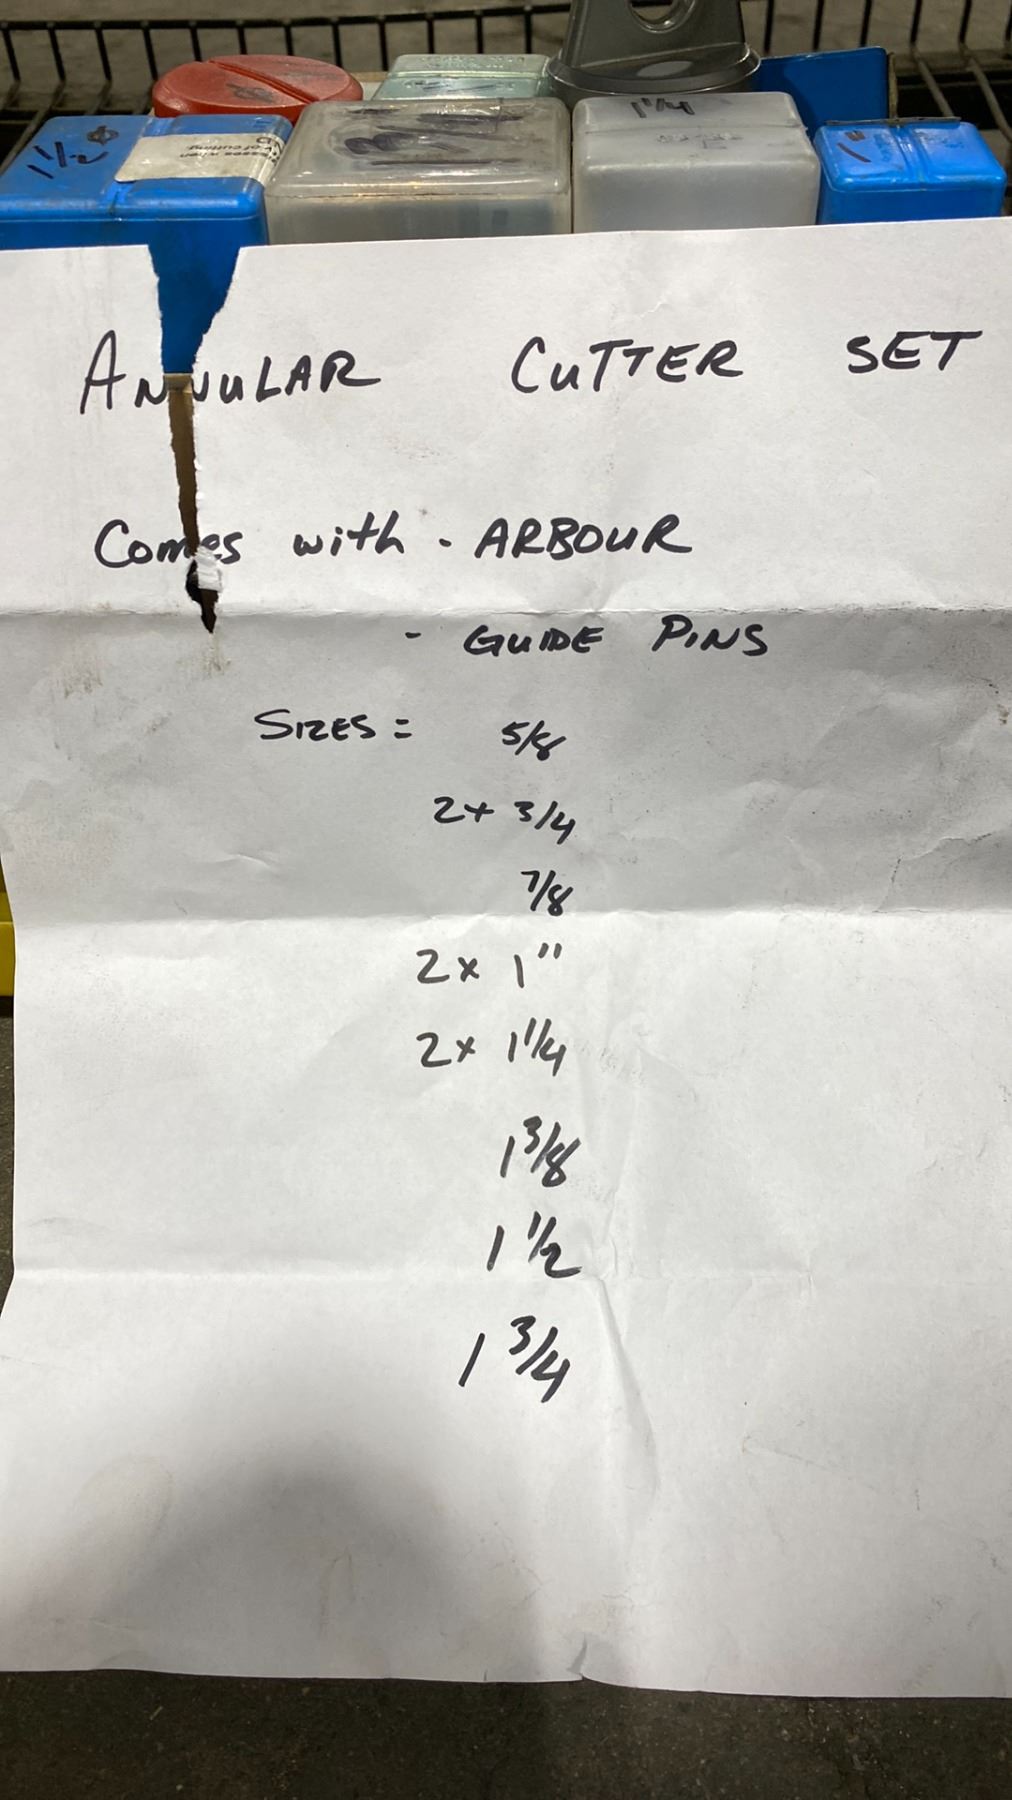 1 1/2
1 1/4
1"
ANNULAR CUTTER SET
Comes with - ARBOUR
- GUIDE PINS
SIZES = 5/8
2x 3/4
7/8
2x 1"
2x 1 1/4
1 3/8
1 1/2
1 3/4